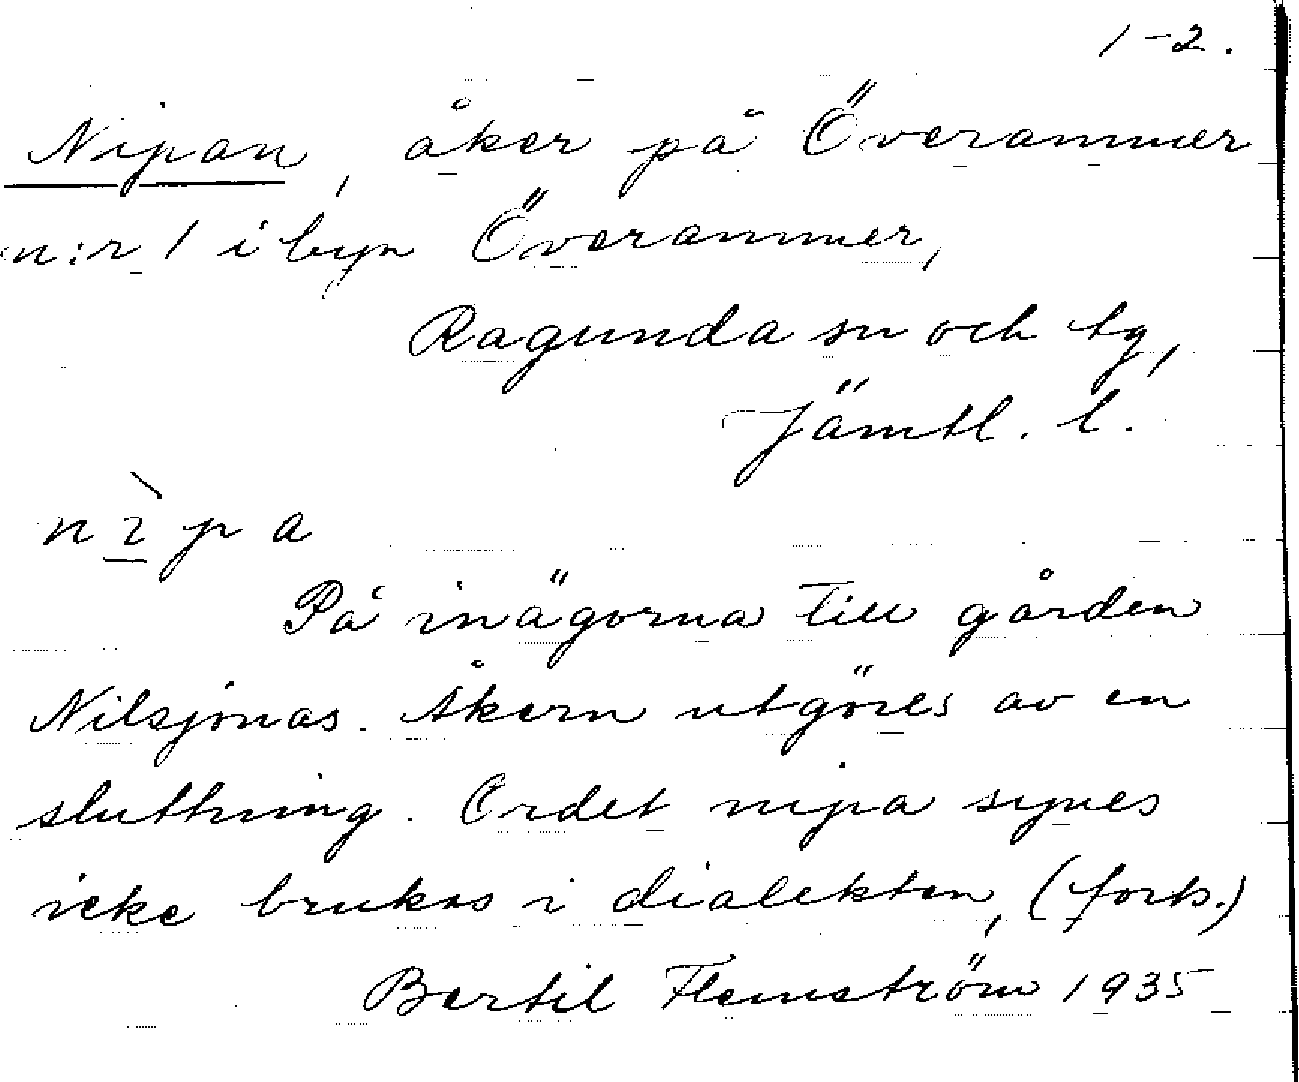 1-2.
Nipan, åker på Överammer
n:r 1 i byn Överammer,
Ragunda sn och tg,
Jämtl. l.
nı̱̀pa
På inägorna till gården
Nilsjonas. Åkern utgöres av en
sluttning. Ordet nipa synes
icke brukas i dialekten, (forts.)
Bertil Flemström 1935